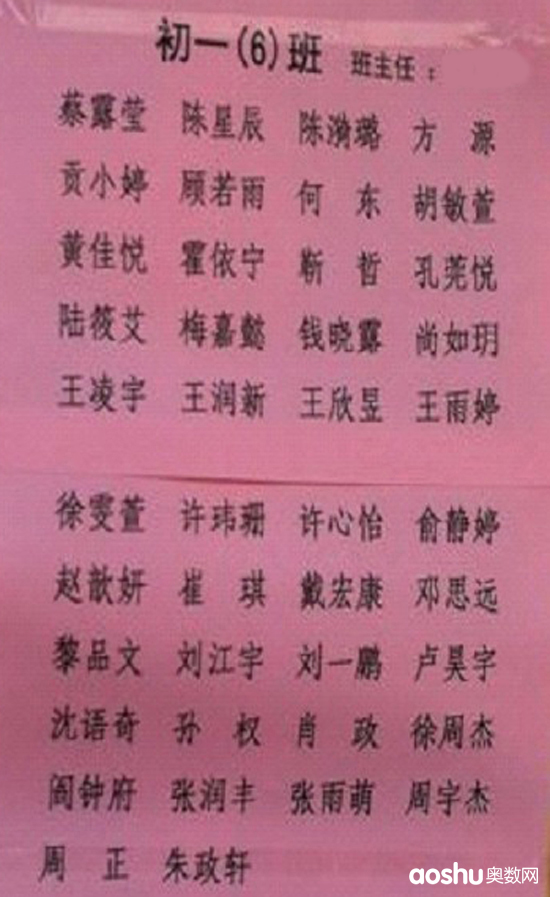 初一(6)班 班主任：
蔡露莹 陈星辰 陈漪璐 方 源
贡小婷 顾若雨 何 东 胡敏萱
黄佳悦 霍依宁 靳 哲 孔莞悦
陆筱艾 梅嘉懿 钱晓露 尚如玥
王凌宇 王润新 王欣昱 王雨婷
徐雯萱 许玮珊 许心怡 俞静婷
赵歆妍 崔 琪 戴宏康 邓思远
黎品文 刘江宇 刘一鹏 卢昊宇
沈语奇 孙 权 肖 政 徐周杰
阎钟府 张润丰 张雨萌 周宇杰
周 正 朱政轩
aoshu奥数网